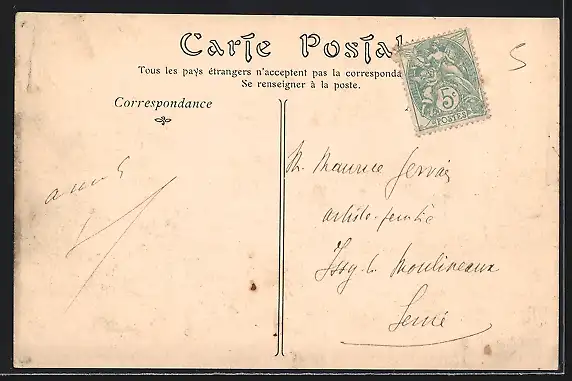 Carte Postale
Tous les pays étrangers n'acceptent pas la corresponda
Se renseigner à la poste.
Correspondance
5c
POSTES
5
M. Maurice Gervais
artiste-peintre
Issy-l. Moulineaux
Seine